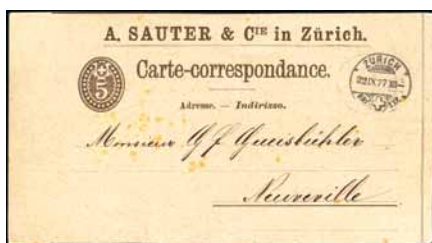 A. SAUTER & CIE in Zürich.
5
Carte-correspondance.
ZÜRICH
22 IX 77
Adresse. — Indirizzo.
Monsieur G f
Neuveville